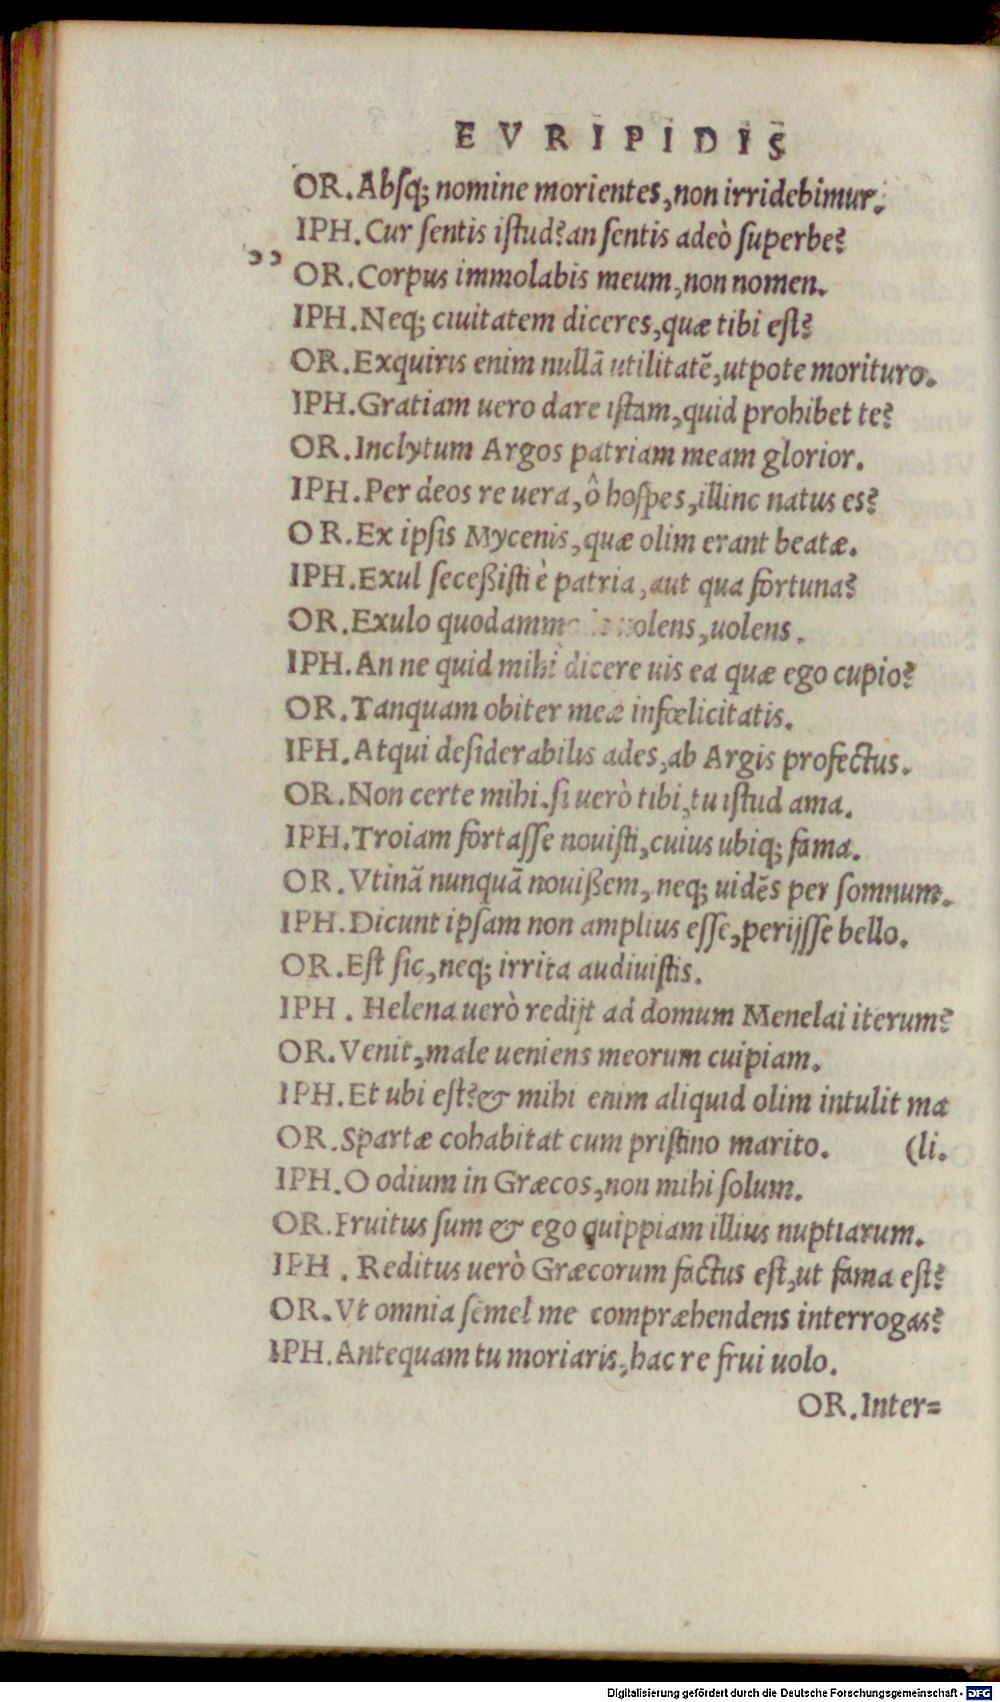 EVRIPIDIS
OR. Absq; nomine morientes, non irridebimur.
IPH. Cur sentis istud? an sentis adeò superbe?
,, OR. Corpus immolabis meum, non nomen.
IPH. Neq; ciuitatem diceres, quæ tibi est?
OR. Exquiris enim nullā utilitatē, utpote morituro.
IPH. Gratiam uero dare istam, quid prohibet te?
OR. Inclytum Argos patriam meam glorior.
IPH. Per deos re uera, ô hospes, illinc natus es?
OR. Ex ipsis Mycenis, quæ olim erant beatæ.
IPH. Exul seceßisti è patria, aut qua fortuna?
OR. Exulo quodammo uolens, uolens.
IPH. An ne quid mihi dicere uis ea quæ ego cupio?
OR. Tanquam obiter meæ infœlicitatis.
IPH. Atqui desiderabilis ades, ab Argis profectus.
OR. Non certe mihi. si uerò tibi, tu istud ama.
IPH. Troiam fortasse nouisti, cuius ubiq; fama.
OR. Vtinā nunquā nouißem, neq; uidēs per somnum.
IPH. Dicunt ipsam non amplius esse, perijsse bello.
OR. Est sic, neq; irrita audiuistis.
IPH. Helena uerò redijt ad domum Menelai iterum?
OR. Venit, male ueniens meorum cuipiam.
IPH. Et ubi est? & mihi enim aliquid olim intulit ma
OR. Spartæ cohabitat cum pristino marito. (li.
IPH. O odium in Græcos, non mihi solum.
OR. Fruitus sum & ego quippiam illius nuptiarum.
IPH. Reditus uerò Græcorum factus est, ut fama est?
OR. Vt omnia semel me compræhendens interrogas?
IPH. Antequam tu moriaris, hac re frui uolo.
OR. Inter=
Digitalisierung gefördert durch die Deutsche Forschungsgemeinschaft - DFG